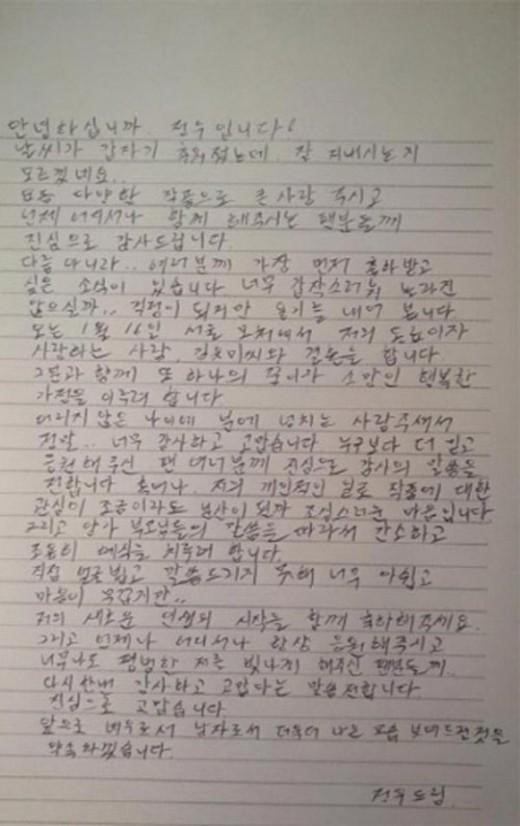 안녕하십니까. 진우입니다!
날씨가 갑자기 추워졌는데. 잘 지내시는지
모르겠네요..
모두 다양한 작품으로 큰 사랑 주시고
언제 어디서나 함께 해주시는 팬분들께
진심으로 감사드립니다.
다름 아니라.. 여러분께 가장 먼저 축하받고
싶은 소식이 있습니다 너무 갑작스러워 놀라진
않으실까.. 걱정이 되지만 용기를 내어 봅니다
오는 1월 16일 서로 모처에서 저의 동료이자
사랑하는 사람, 씨와 결혼을 합니다
그분과 함께 또 하나의 꿈이자 소망인 행복한
가정을 이루려 합니다
어리지 않은 나이에 분에 넘치는 사랑주셔서
정말.. 너무 감사하고 고맙습니다 누구보다 더 믿고
응원해주신 팬 여러분께 진심으로 감사의 말씀을
전합니다 혹여나, 저의 개인적인 일로 작품에 대한
관심이 조금이라도 분산이 될까 조심스러운 마음입니다
그리고 양가 부모님들의 말씀을 따라서 간소하고
조용히 예식을 치루려 합니다.
직접 얼굴 뵙고 말씀드리지 못해 너무 아쉽고
마음이 무겁지만..
저의 새로운 인생의 시작을 함께 축하해주세요.
그리고 언제나 어디서나 항상 응원해주시고
너무나도 평범한 저를 빛나게 해주신 팬분들께..
다시한번 감사하고 고맙다는 말씀전합니다
진심으로 고맙습니다
앞으로 배우로서 남자로서 더욱더 나은 모습 보여드릴것을
약속하겠습니다.
진우드림.